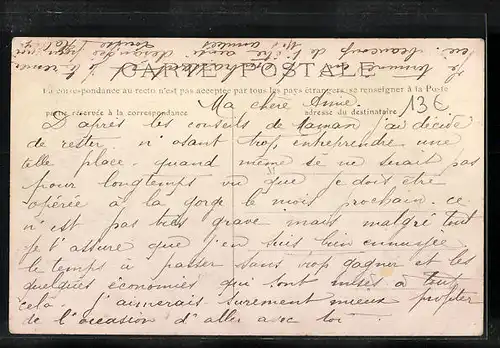 CARTE POSTALE
La correspondance au recto n'est pas acceptée par tous les pays étrangers, se renseigner à la Poste
partie réservée à la correspondance adresse du destinataire
13€
Ma chère Anne.
D'après les conseils de Maman j'ai décidé
de rester n'osant trop entreprendre une
telle place. quand même se ne serait pas
pour longtemps vu que je dois être
opérée à la gorge le mois prochain. ce
n'est pas très grave mais malgré tout
je t'assure que j'en suis bien ennuyée
le temps à passer sans rop gagner et les
quelques économies qui sont mises à tout
celà. J'aimerais surement mieux profiter
de l'occasion d'aller avec toi.